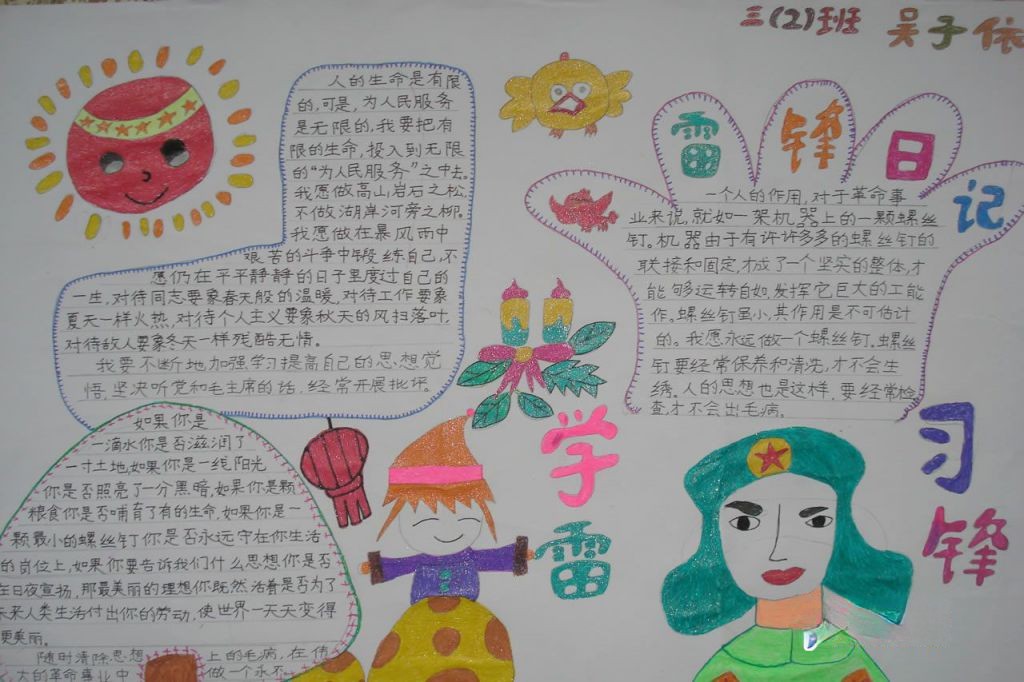 三(2)班 吴子依
人的生命是有限
的,可是,为人民服务
是无限的,我要把有
限的生命,投入到无限
的“为人民服务”之中去。
我愿做高山岩石之松,
不做湖岸河旁之柳。
我愿做在暴风雨中
艰苦的斗争中锻练自己,不
愿仍在平平静静的日子里度过自己的
一生,对待同志要象春天般的温暖,对待工作要象
夏天一样火热,对待个人主义要象秋天的风扫落叶,
对待敌人要象冬天一样残酷无情。
我要不断地加强学习提高自己的思想觉
悟,坚决听党和毛主席的话,经常开展批评。
雷锋日记
一个人的作用,对于革命事
业来说,就如一架机器上的一颗螺丝
钉。机器由于有许许多多的螺丝钉的
联接和固定,才成了一个坚实的整体,才
能够运转自如,发挥它巨大的工能
作。螺丝钉虽小,其作用是不可估计
的。我愿永远做一个螺丝钉。螺丝
钉要经常保养和清洗,才不会生
绣。人的思想也是这样,要经常检
查,才不会出毛病。
如果你是
一滴水你是否滋润了
一寸土地,如果你是一线阳光
你是否照亮了一分黑暗,如果你是颗
粮食你是否哺育了有的生命,如果你是一
颗最小的螺丝钉你是否永远守在你生活
的岗位上,如果你要告诉我们什么思想你是否
在日夜宣扬,那最美丽的理想你既然活着是否为了
未来人类生活付出你的劳动,使世界一天天变得
更美丽。
随时清除思想上的毛病,在伟
大的革命事业中做一个永不
学习
雷锋